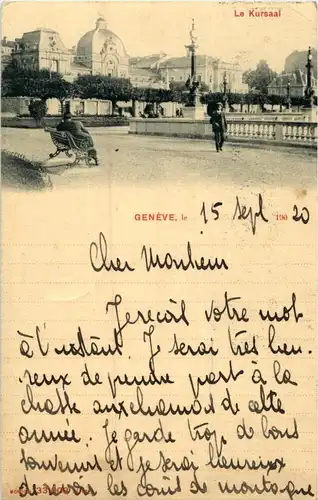 Le Kursaal
GENÈVE, le 15 Sept 190 20
Cher Monsieur
Je reçois votre mot
à l'instant. Je serai très heu-
reux de prendre part à la
chasse aux chamois de cette
année. Je garde trop de bons
souvenirs et je serai heureux
de revoir les coins de montagne